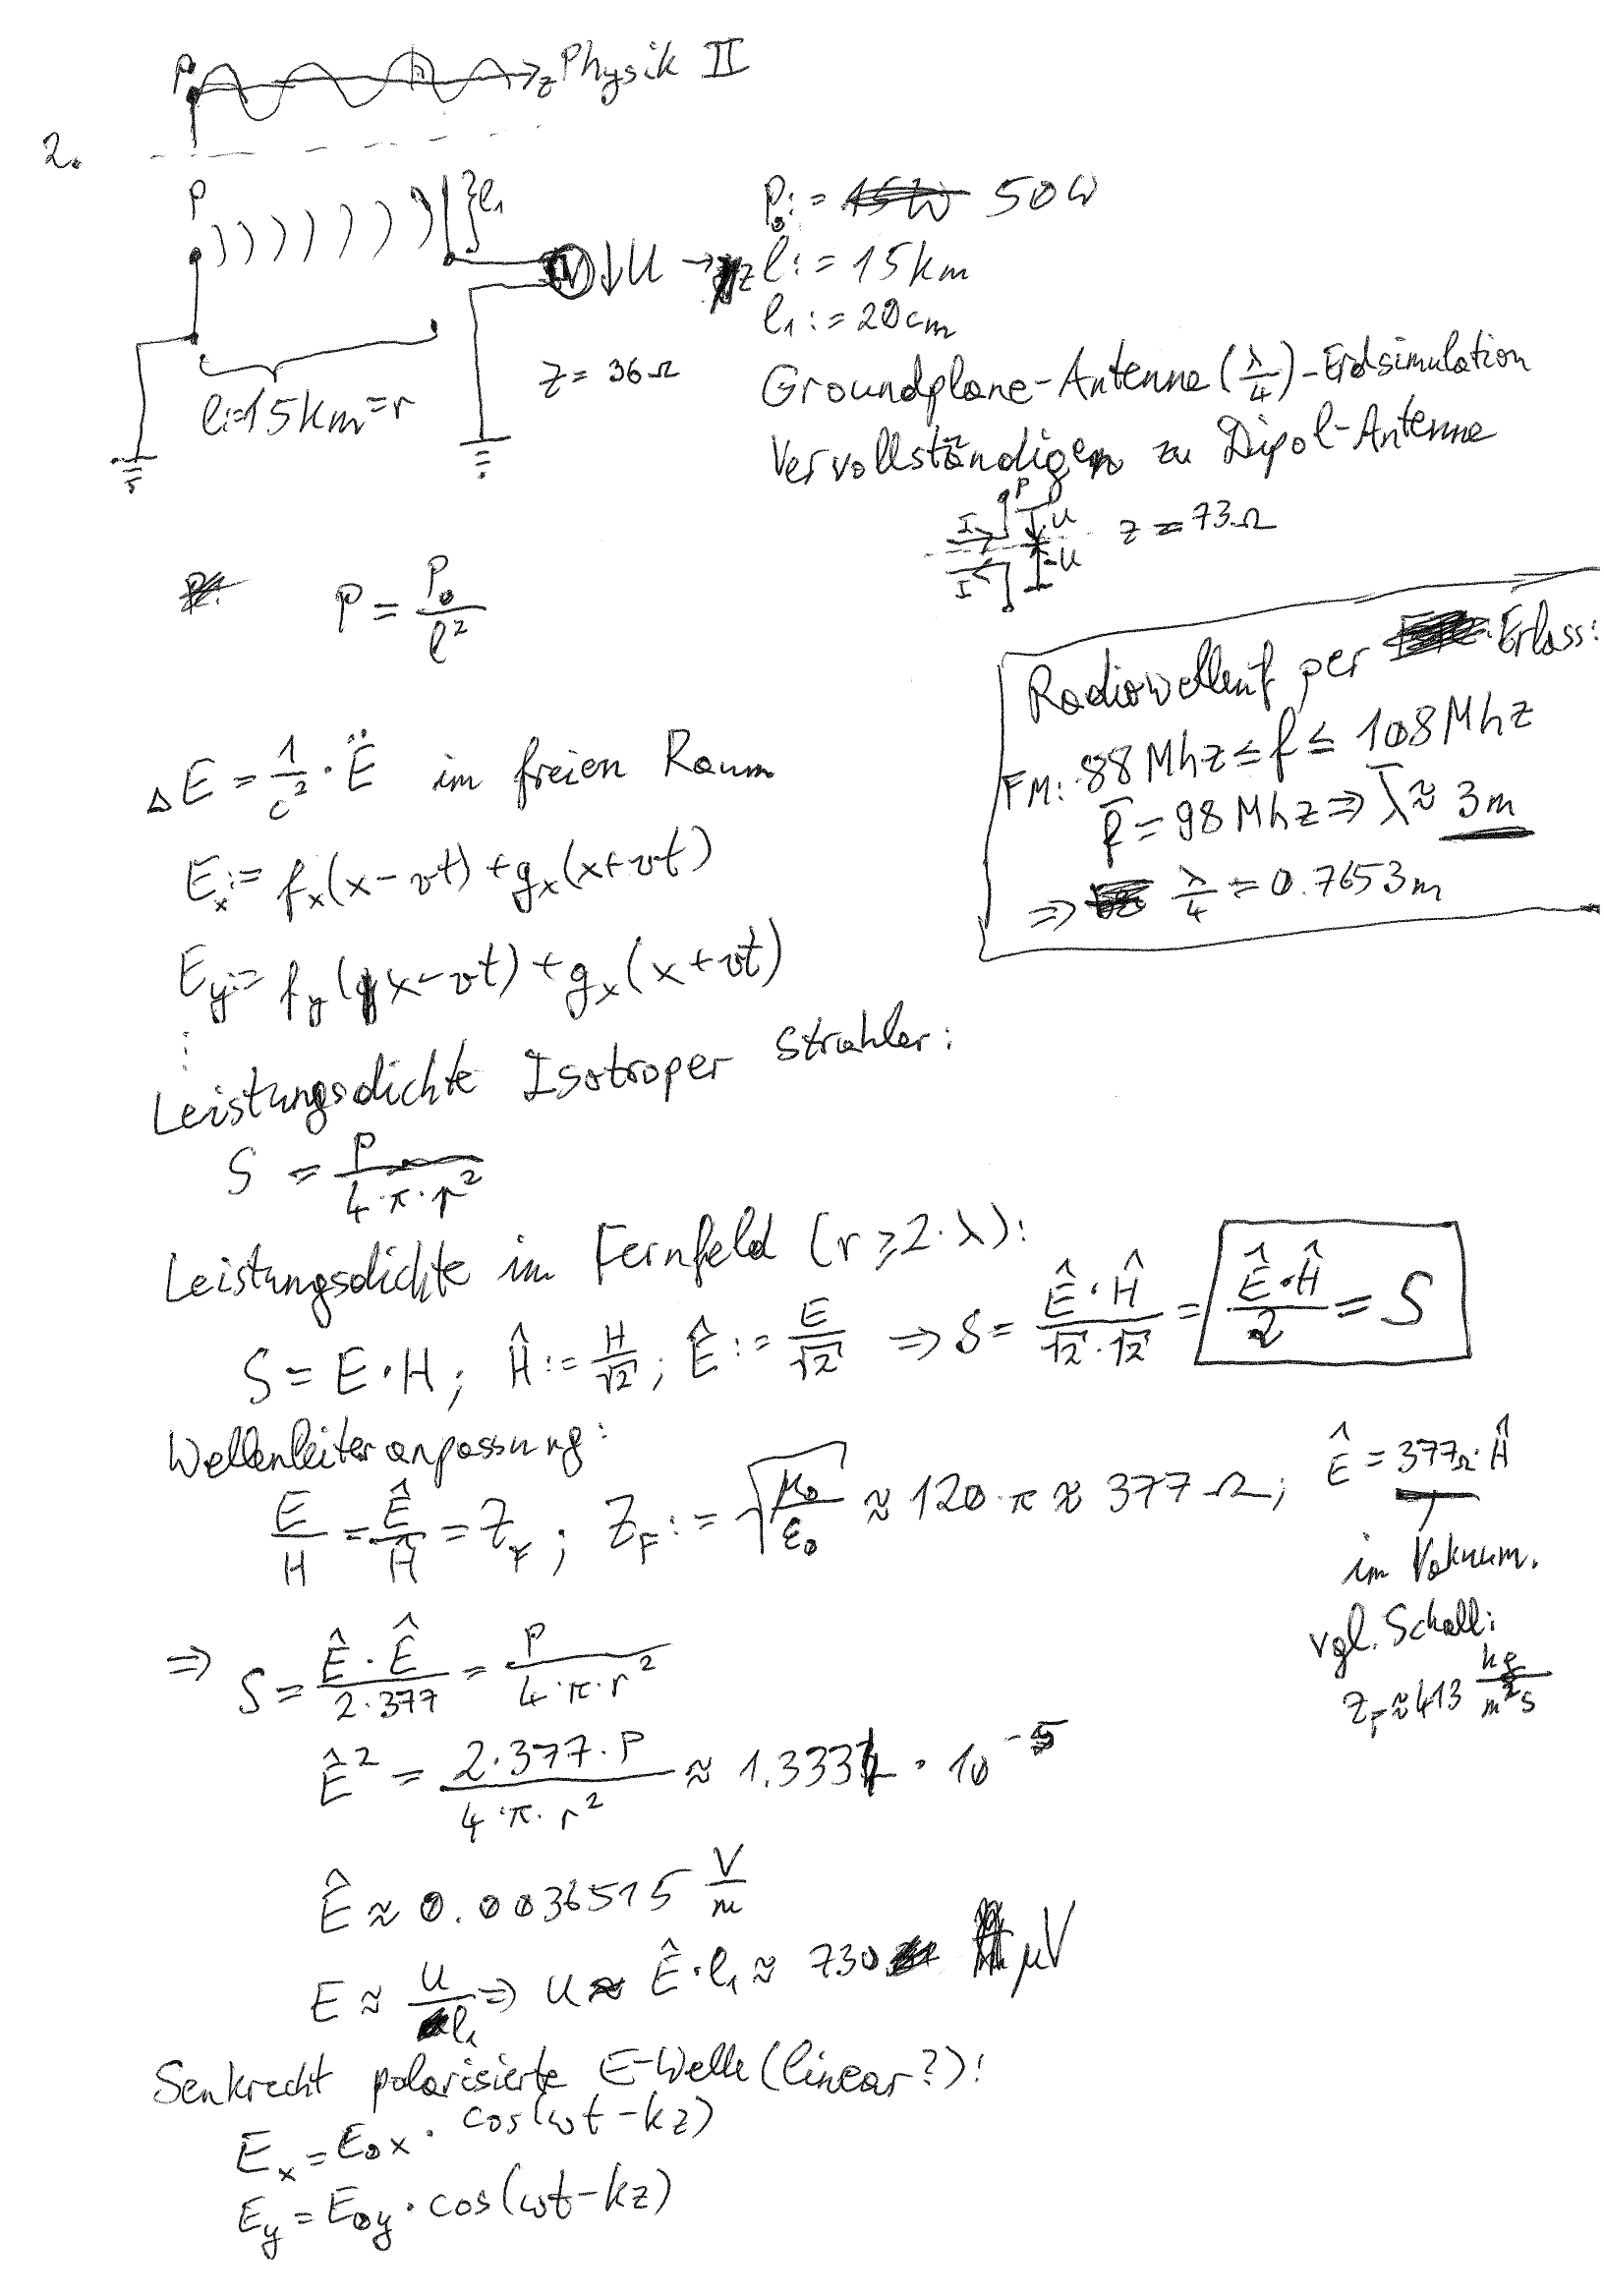 P₀ → z Physik II
2.
P } l₁ P₀ := 50W
V ↓U → z l := 15km
l₁ := 20cm
z = 36Ω Groundplane-Antenne (λ/4)-Erdsimulation
l:=15km=r Vervollständigen zu Dipol-Antenne
P I U z = 73Ω
I -U
P = P₀/l²
Radiowellenf per Erlass:
FM: 88 Mhz ≤ f ≤ 108 Mhz
f̄ = 98 Mhz ⇒ λ̄ ≈ 3m
⇒ λ/4 = 0.7653m
△E = 1/c² · Ë im freien Raum
Eₓ := fₓ(x-vt) + gₓ(x+vt)
E_y := f_y(x-vt) + gₓ(x+vt)
⋮
Leistungsdichte Isotroper Strahler:
S = P/(4·π·r²)
Leistungsdichte im Fernfeld (r ≥ 2·λ):
S = E·H; Ĥ := H/√2; Ê := E/√2 ⇒ S = (Ê·Ĥ)/(√2·√2) = (Ê·Ĥ)/2 = S
Wellenleiteranpassung:
E/H = Ê/Ĥ = Z_F; Z_F := √(μ₀/ε₀) ≈ 120·π ≈ 377Ω; Ê = 377Ω·Ĥ
im Vakuum.
vgl. Schall:
Z_F ≈ 413 kg/(m²s)
⇒ S = (Ê·Ê)/(2·377) = P/(4·π·r²)
Ê² = (2·377·P)/(4·π·r²) ≈ 1.333 · 10⁻⁵
Ê ≈ 0.0036515 V/m
E ≈ U/l₁ ⇒ U ≈ Ê·l₁ ≈ 730 μV
Senkrecht polarisierte E-Welle (linear?):
Eₓ = E₀ₓ · cos(ωt-kz)
E_y = E₀y · cos(ωt-kz)